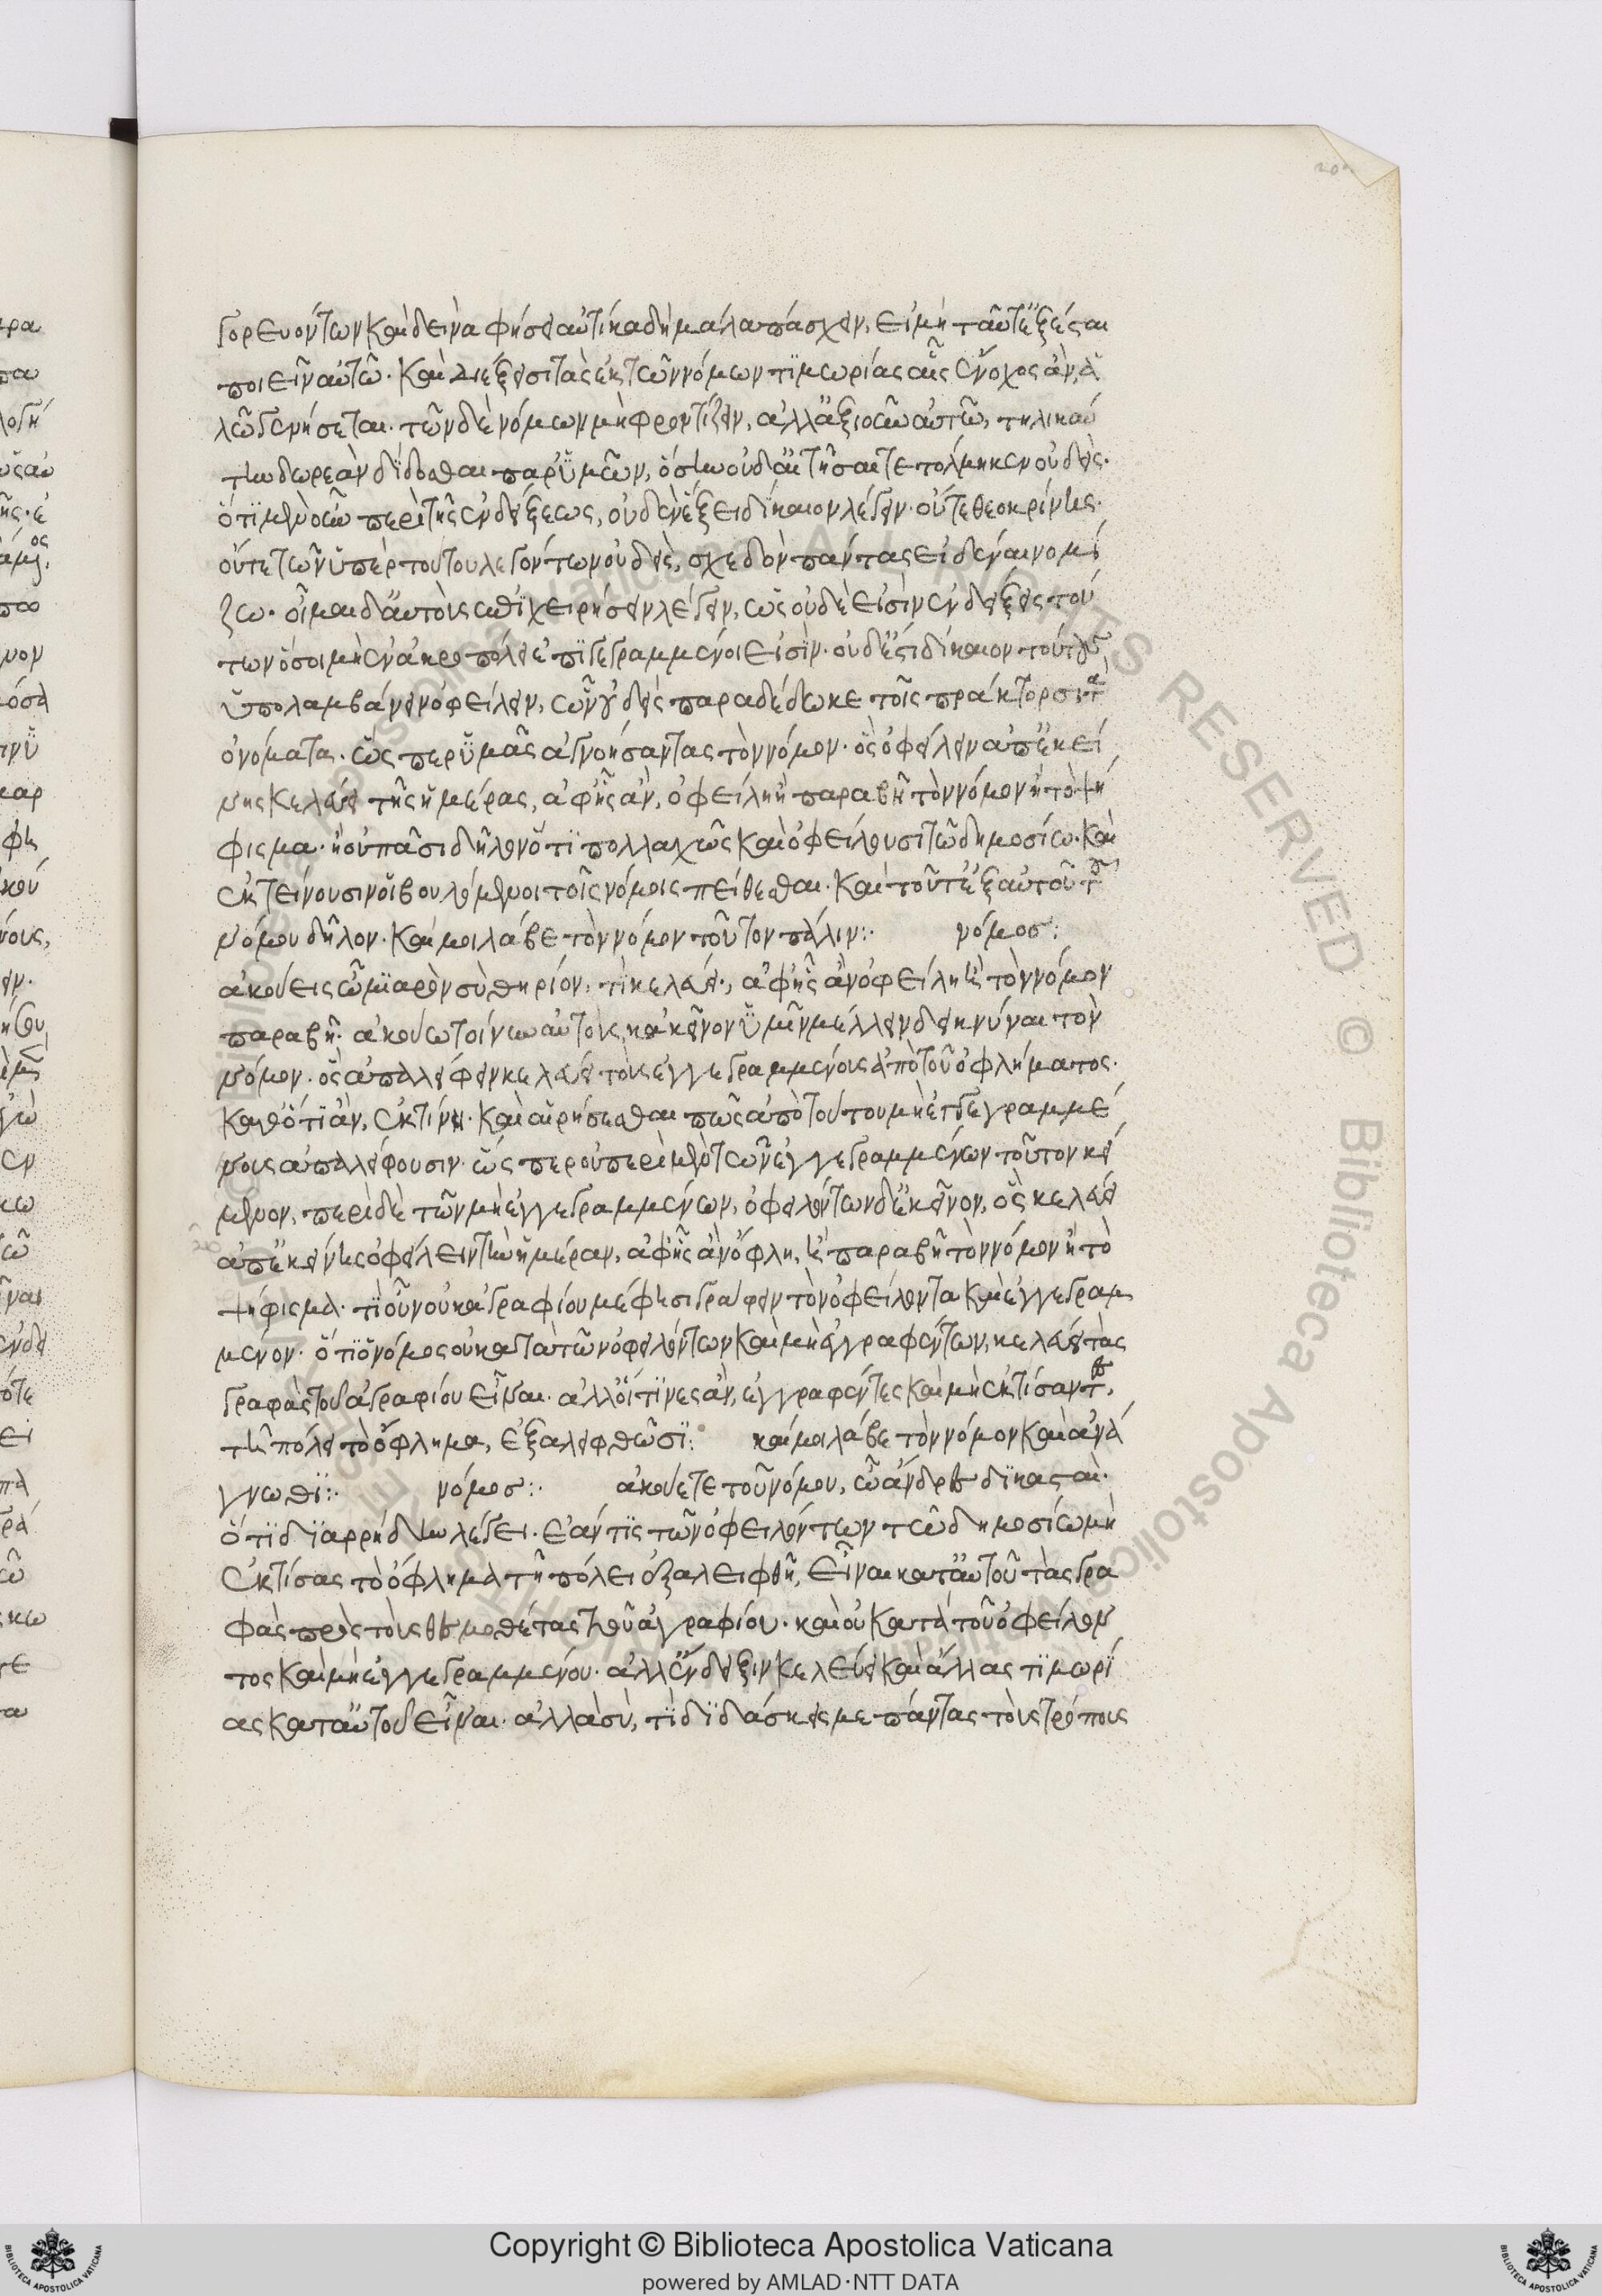 γορευόντων καὶ δεινὰ φήσει αὐτίκα δὴ μάλα πάσχειν, εἰ μὴ ταῦτ' ἐξέσται
ποιεῖν αὐτῶ· καὶ διέξεισι τὰς ἐκ τῶν νόμων τιμωρίας αἷς ἔνοχος ἂν, ἁ
λῶ γενήσεται. τῶν δὲ νόμων μὴ φροντίζειν, ἀλλ' ἀξιοῦν αὑτῶ, τηλικαύ
την δωρεὰν δίδοσθαι παρ' ὑμῶν, ὅσην οὐδ' αἰτῆσαι τετόλμηκεν οὐδείς.
ὅτι μὲν οὖν περὶ τῆς ἐνδείξεως, οὐδὲν ἕξει δίκαιον λέγειν· οὔτε θεοκρίνης·
οὔτε τῶν ὑπὲρ τούτου λεγόντων οὐδείς, σχεδὸν πάντας εἰδέναι νομί
ζω. οἶμαι δ' αὐτοὺς ἐπιχειρήσειν λέγειν, ὡς οὐδὲ εἰσὶν ἐνδείξεις τού
των ὅσοι μὴ ἐν ἀκροπόλει ἐπιγεγραμμένοι εἰσὶν. οὐδ' ἐστὶ δίκαιον τούτους
ὑπολαμβάνειν ὀφείλειν, ὧν οὐδεὶς παραδέδωκε τοῖς πράκτορσι τὰ
ὀνόματα. ὥσπερ ὑμᾶς ἀγνοήσαντας τὸν νόμον. ὃς ὀφείλειν ἀπ' ἐκεί
νης κελεύει τῆς ἡμέρας, ἀφ' ἧς ἂν, ὀφείλη ἢ παραβῆ τὸν νόμον ἢ τὸ ψή
φισμα. ἢ οὐ πᾶσι δῆλον ὅτι πολλαχῶς καὶ ὀφείλουσι τῶ δημοσίω. καὶ
ἐκτείνουσιν οἱ βουλόμενοι τοῖς νόμοις πείθεσθαι. καὶ τοῦτ' ἐξ αὐτοῦ τοῦ
νόμου δῆλον. καί μοι λάβε τὸν νόμον τοῦτον πάλιν:· νόμοσ:
ἀκούεις ὦ μιαρὸν σὺ θηρίον, τί κελεύει, ἀφ' ἧς ἂν ὀφείλη ἢ τὸν νόμον
παραβῆ. ἀκούω τοίνυν αὐτοὺς κἀκεῖνον ὑμῖν μέλλειν δεικνύναι τὸν
νόμον. ὃς ἀπαλείφειν κελεύει τοὺς ἐγγεγραμμένους ἀπὸ τοῦ ὀφλήματος.
καθ' ὅτι ἂν, ἐκτίνη. καὶ αἱρήσεσθαι πῶς ἀπὸ τούτου μὴ ἐπιγεγραμμέ
νους ἀπαλείφουσιν. ὥσπερ οὐ περὶ μὲν τῶν ἐγγεγραμμένων τοῦτον κεί
μενον, περὶ δὲ τῶν μὴ ἐγγεγραμμένων, ὀφειλόντων δὲ κεῖνον, ὃς κελεύει
ἀπ' ἐκείνης ὀφείλειν τὴν ἡμέραν, ἀφ' ἧς ἂν ὄφλη, ἢ παραβῆ τὸν νόμον ἢ τὸ
ψήφισμα. τί οὖν οὐκ ἀγραφίου μέ φησι γράφειν τὸν ὀφείλοντα καὶ ἐγγεγραμ
μένον. ὅτι ὁ νόμος οὐ κατὰ τῶν ὀφειλόντων καὶ μὴ ἐγγραφέντων, κελεύει τὰς
γραφὰς τοῦ ἀγραφίου εἶναι. ἀλλ' οἵτινες ἂν, ἐγγραφέντες καὶ μὴ ἐκτίσαντες,
τῆ πόλει τὸ ὄφλημα, ἐξαλειφθῶσι: καί μοι λάβε τὸν νόμον καὶ ἀνά
γνωθι:· νόμοσ:· ἀκούετε τοῦ νόμου, ὦ ἄνδρες δικασταί.
ὅτι διαρρήδην λέγει. ἐάν τις τῶν ὀφειλόντων τῶ δημοσίω μὴ
ἐκτίσας τὸ ὄφλημα τῆ πόλει ἐξαλειφθῆ, εἶναι κατ' αὐτοῦ τὰς γρα
φὰς πρὸς τοὺς θεσμοθέτας τοῦ ἀγραφίου. καὶ οὐ κατὰ τοῦ ὀφείλον
τος καὶ μὴ ἐγγεγραμμένου. ἀλλ' ἔνδειξιν κελεύει καὶ ἄλλας τιμωρί
ας κατ' αὐτοῦ εἶναι. ἀλλὰ σὺ, τί διδάσκεις με πάντας τοὺς τρόπους
Copyright © Biblioteca Apostolica Vaticana
powered by AMLAD·NTT DATA